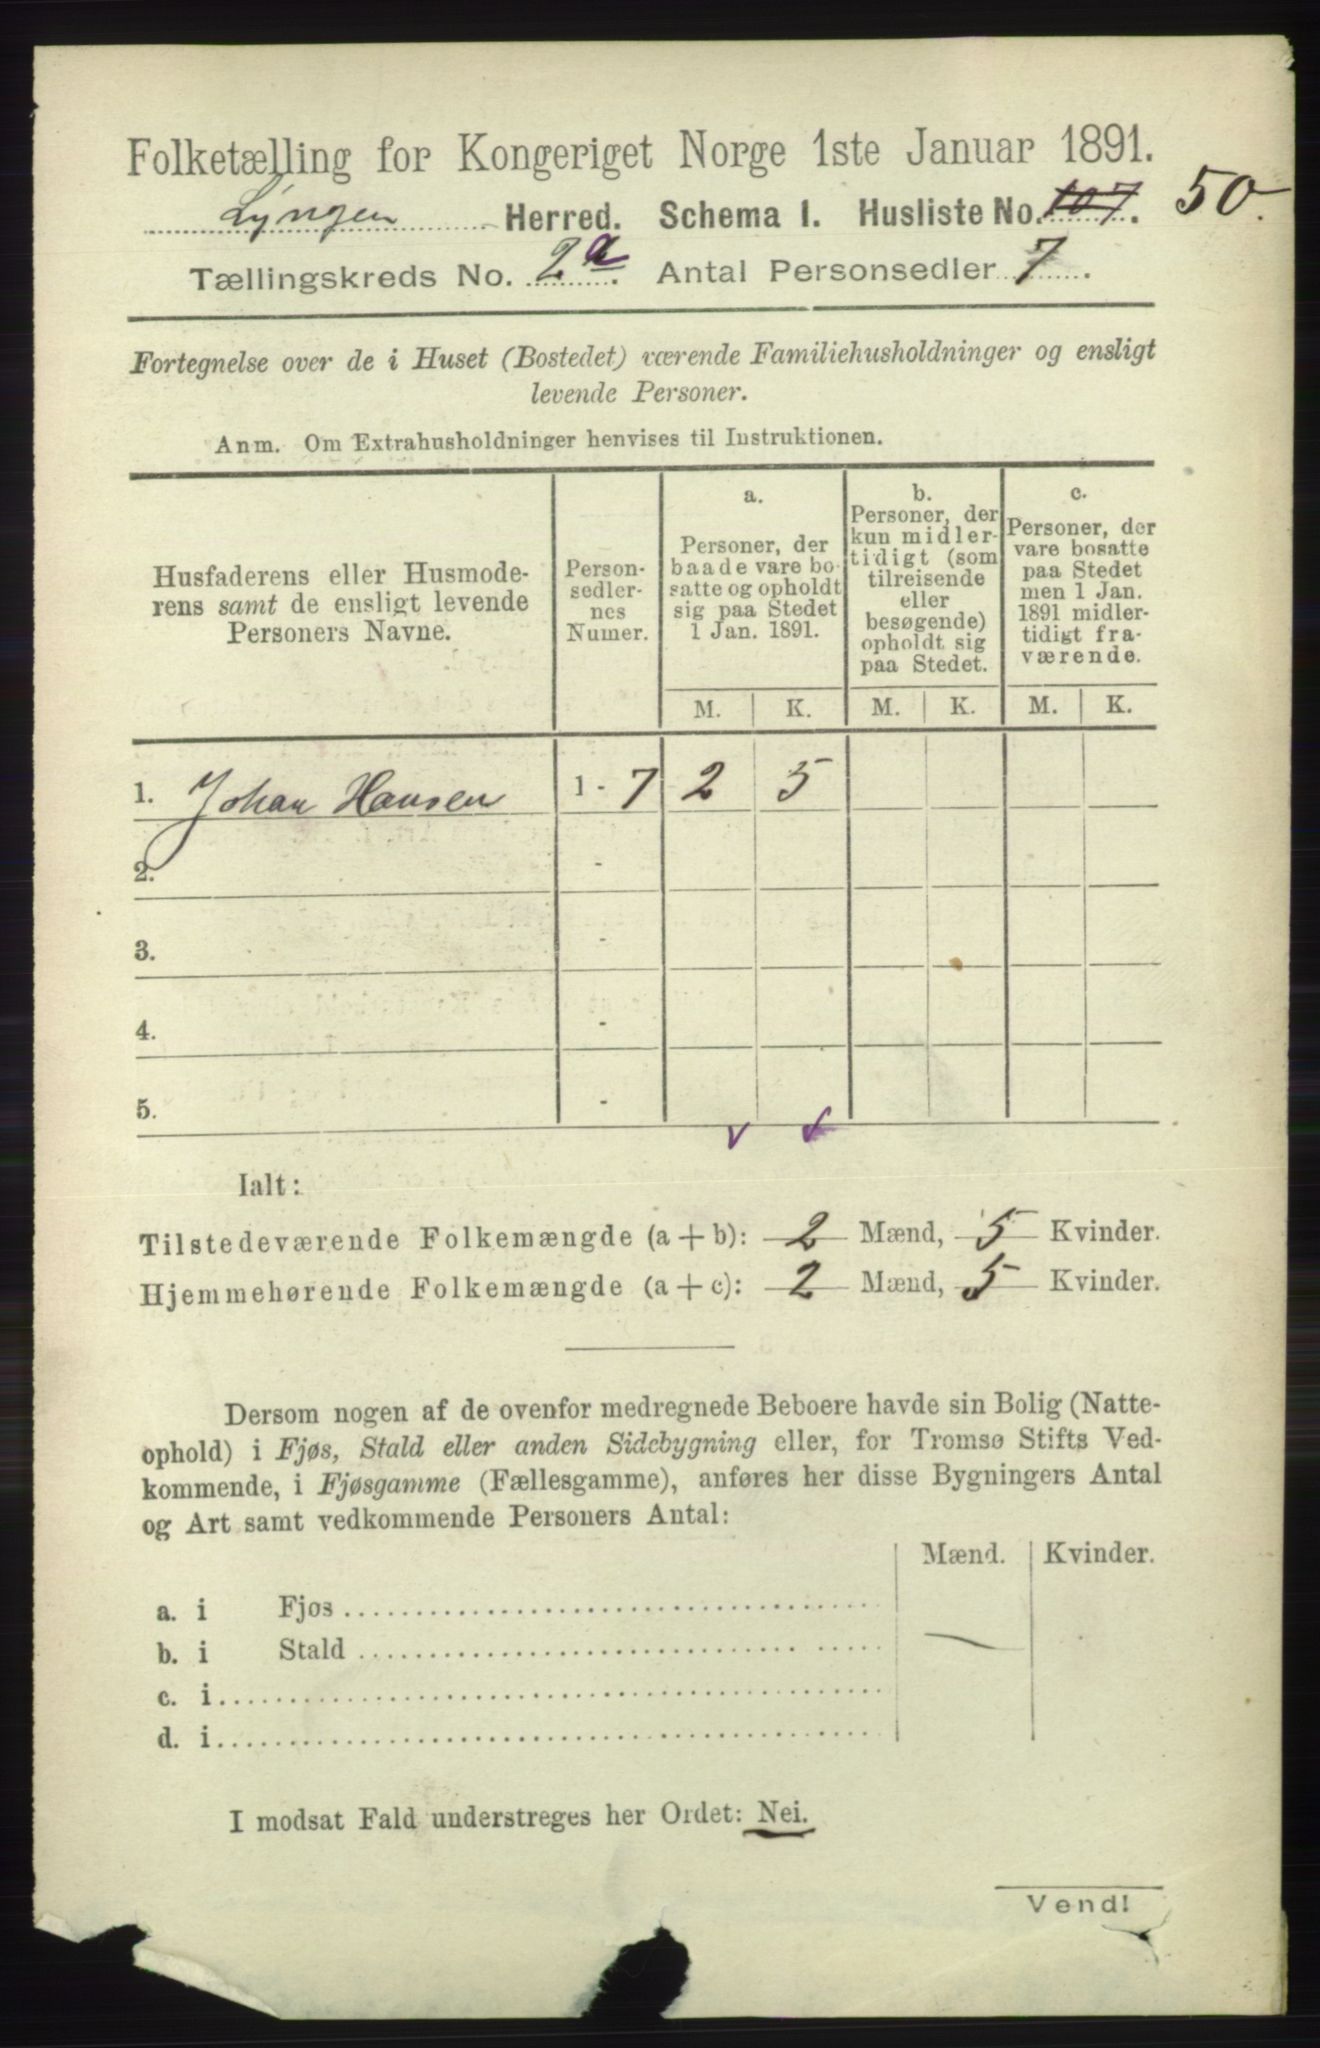 Folketælling for Kongeriget Norge 1ste Januar 1891.
Lyngen Herred. Schema I. Husliste No. 107. 50.
Tællingskreds No. 2a. Antal Personsedler 7.
Fortegnelse over de i Huset (Bostedet) værende Familiehusholdninger og ensligt
levende Personer.
Anm. Om Extrahusholdninger henvises til Instruktionen.
Husfaderens eller Husmode-
rens samt de ensligt levende
Personers Navne.
Person-
sedler-
nes
Numer.
a.
Personer, der
baade vare bo-
satte og opholdt
sig paa Stedet
1 Jan. 1891.
b.
Personer, der
kun midler-
tidigt (som
tilreisende
eller
besøgende)
opholdt sig
paa Stedet.
c.
Personer, der
vare bosatte
paa Stedet
men 1 Jan.
1891 midler-
tidigt fra-
værende.
M. K. M. K. M. K.
1. Johan Hansen 1 - 7 2 5
2. -
3. -
4. -
5. -
Ialt:
Tilstedeværende Folkemængde (a + b): 2 Mænd, 5 Kvinder.
Hjemmehørende Folkemængde (a + c): 2 Mænd, 5 Kvinder.
Dersom nogen af de ovenfor medregnede Beboere havde sin Bolig (Natte-
ophold) i Fjøs, Stald eller anden Sidebygning eller, for Tromsø Stifts Ved-
kommende, i Fjøsgamme (Fællesgamme), anføres her disse Bygningers Antal
og Art samt vedkommende Personers Antal:
Mænd. Kvinder.
a. i Fjøs
b. i Stald
c. i
d. i
I modsat Fald understreges her Ordet: Nei.
Vend!